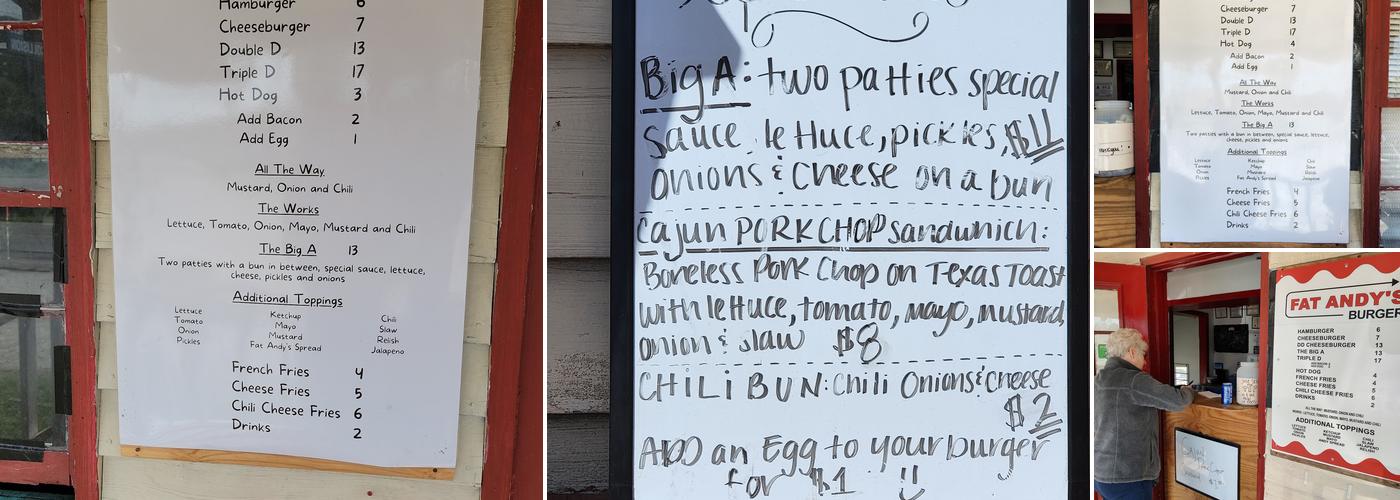 Hamburger 6
Cheeseburger 7
Double D 13
Triple D 17
Hot Dog 3
Add Bacon 2
Add Egg 1
All The Way
Mustard, Onion and Chili
The Works
Lettuce, Tomato, Onion, Mayo, Mustard and Chili
The Big A 13
Two patties with a bun in between, special sauce, lettuce,
cheese, pickles and onions
Additional Toppings
Lettuce Ketchup Chili
Tomato Mayo Slaw
Onion Mustard Relish
Pickles Fat Andy's Spread Jalapeno
French Fries 4
Cheese Fries 5
Chili Cheese Fries 6
Drinks 2
Big A: two patties special
sauce, lettuce, pickles, $11
onions & cheese on a bun
Cajun PORK CHOP sandwhich:
Boneless Pork Chop on Texas Toast
with lettuce, tomato, mayo, mustard,
onion & slaw $8
CHILI BUN: Chili Onions & cheese
$2
ADD an Egg to your burger
for $1
Cheeseburger 7
Double D 13
Triple D 17
Hot Dog 4
Add Bacon 2
Add Egg 1
All The Way
Mustard, Onion and Chili
The Works
Lettuce, Tomato, Onion, Mayo, Mustard and Chili
The Big A 13
Two patties with a bun in between, special sauce, lettuce,
cheese, pickles and onions
Additional Toppings
Lettuce Ketchup Chili
Tomato Mayo Slaw
Onion Mustard Relish
Pickles Fat Andy's Spread Jalapeno
French Fries 4
Cheese Fries 5
Chili Cheese Fries 6
Drinks 2
FAT ANDY'S
BURGER
HAMBURGER 6
CHEESEBURGER 7
DD CHEESEBURGER 13
THE BIG A 13
TRIPLE D 17
HOT DOG 4
FRENCH FRIES 4
CHEESE FRIES 5
CHILI CHEESE FRIES 6
DRINKS 2
ALL THE WAY: MUSTARD, ONION AND CHILI
WORKS: LETTUCE, TOMATO, ONION, MAYO, MUSTARD AND CHILI
ADDITIONAL TOPPINGS
LETTUCE KETCHUP CHILI
TOMATO MAYO SLAW
ONION MUSTARD JALAPENO
PICKLES ANDY SPREAD RELISH